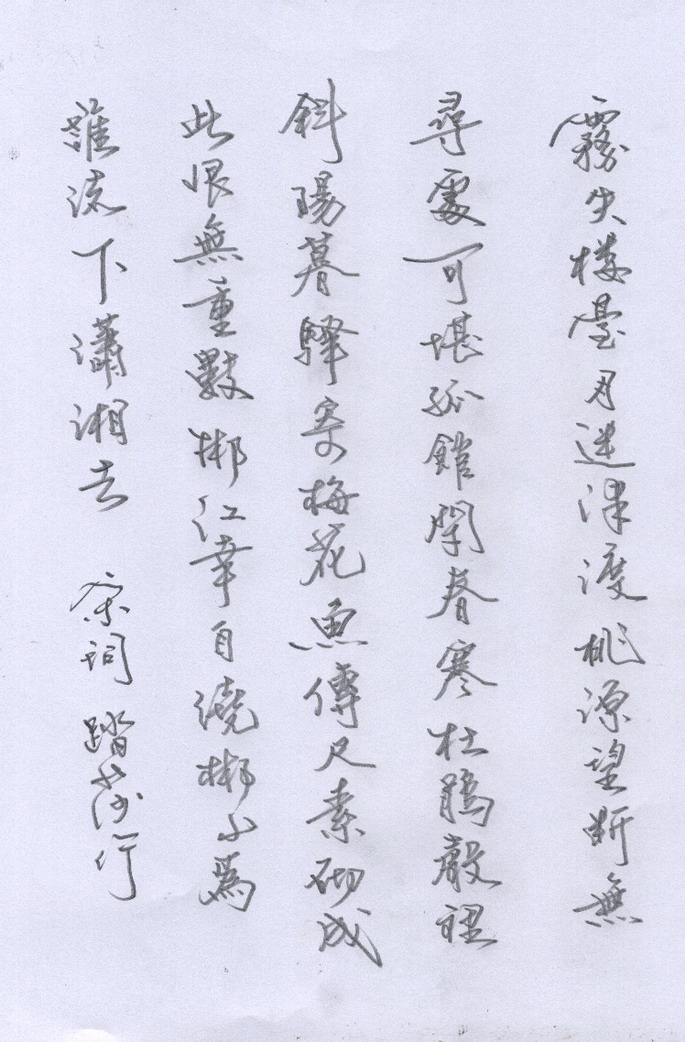 霧失楼臺月迷津渡桃源望断無
尋處可堪孤館閉春寒杜鵑聲裡
斜陽暮驛寄梅花魚傳尺素砌成
此恨無重數郴江幸自繞郴山為
誰流下瀟湘去 宋詞 踏莎行